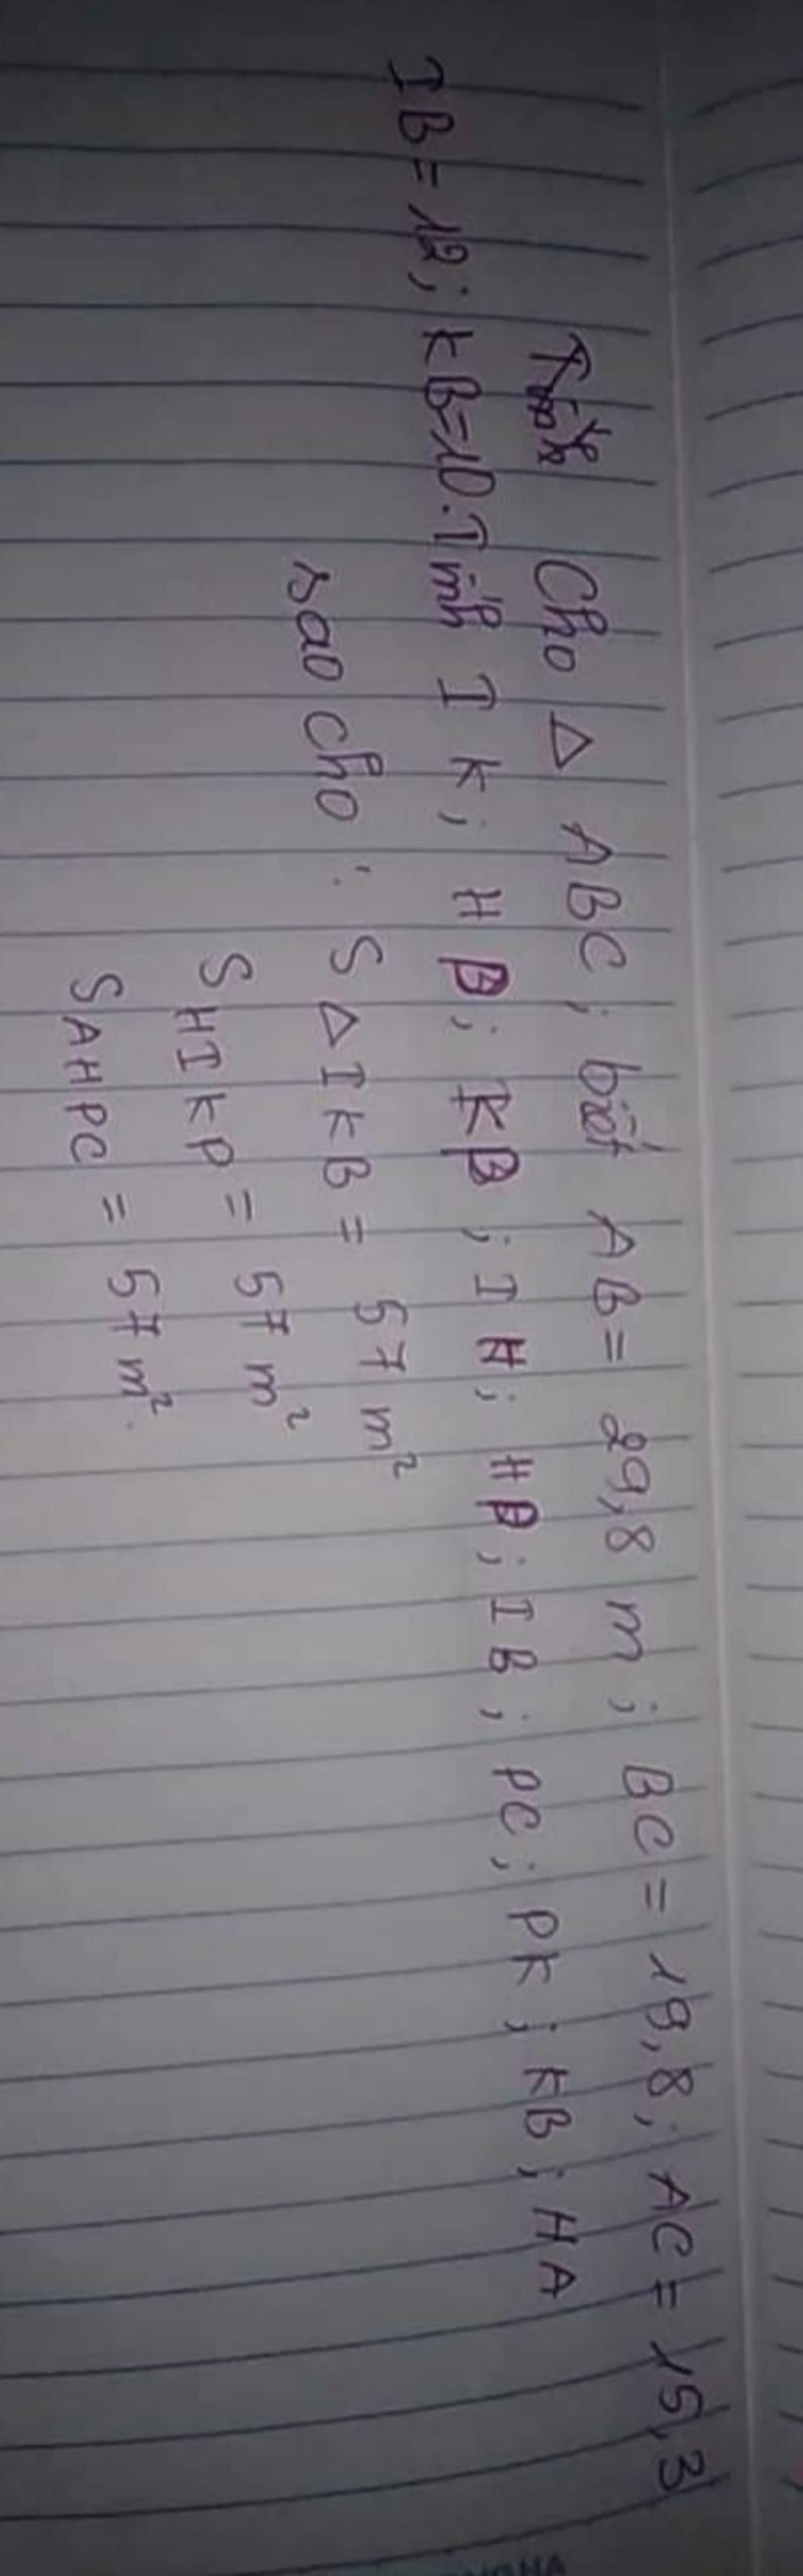 Cho Δ ABC ; biết AB = 29,8 m ; BC = 19,8 ; AC = 15,3
IB = 12 ; KB = 10 . Tính IK ; HB ; KB ; IH ; HP ; IB ; PC ; PK ; KB ; HA
sao cho : S Δ IKB = 57 m²
S HIKP = 57 m²
S AHPC = 57 m².